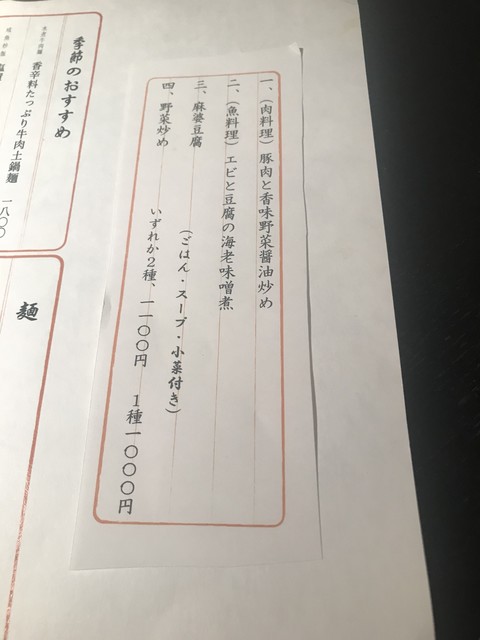 一、（肉料理）豚肉と香味野菜醤油炒め
二、（魚料理）エビと豆腐の海老味噌煮
三、麻婆豆腐
四、野菜炒め
（ごはん・スープ・小菜付き）
いずれか２種、一一〇〇円　１種一〇〇〇円
季節のおすすめ
香辛料たっぷり牛肉土鍋麺　一八〇〇
麺